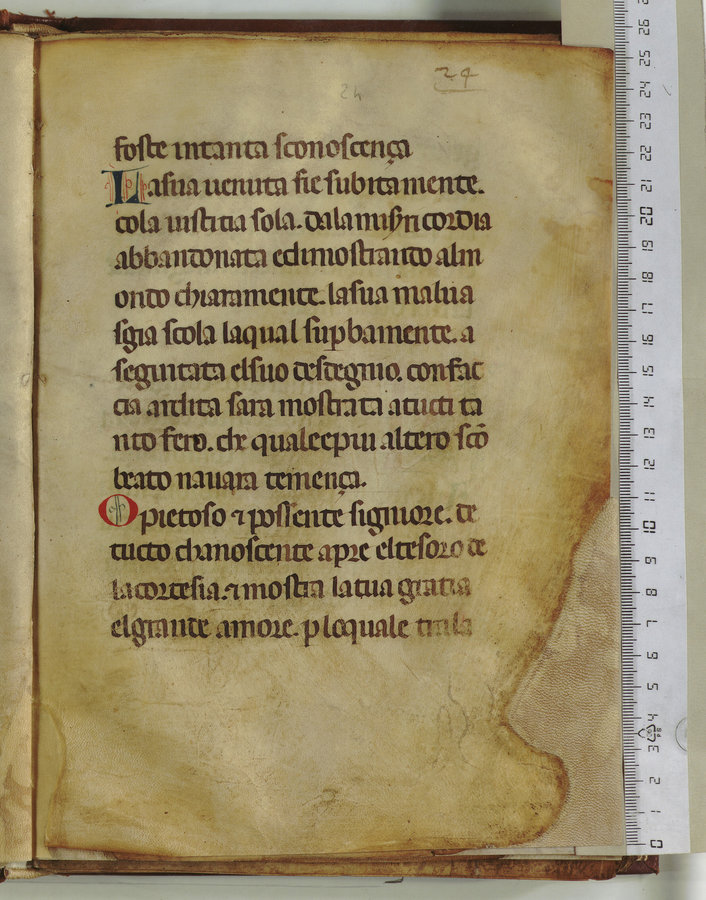 24
24
foste in tanta sconoscença
La sua uenuta fie subitamente.
cola iustitia sola. dala misericordia
abbandonata ed imostrando alm
ondo chiaramente. la sua malua
sgia scola laqual supbamente. a
seguitata el suo desdegnio. con fac
cia ardita sara mostrata a tucti ta
nto fero. che quale e piu altero scō
beato nauara temença.
O pietoso ⁊ possente signiore. de
tucto chanoscente apre el tesoro de
la cortesia. ⁊ mostra la tua gratia
el grande amore. p loquale
0 1 2 3 4 5 6 7 8 9 10 11 12 13 14 15 16 17 18 19 20 21 22 23 24 25 26